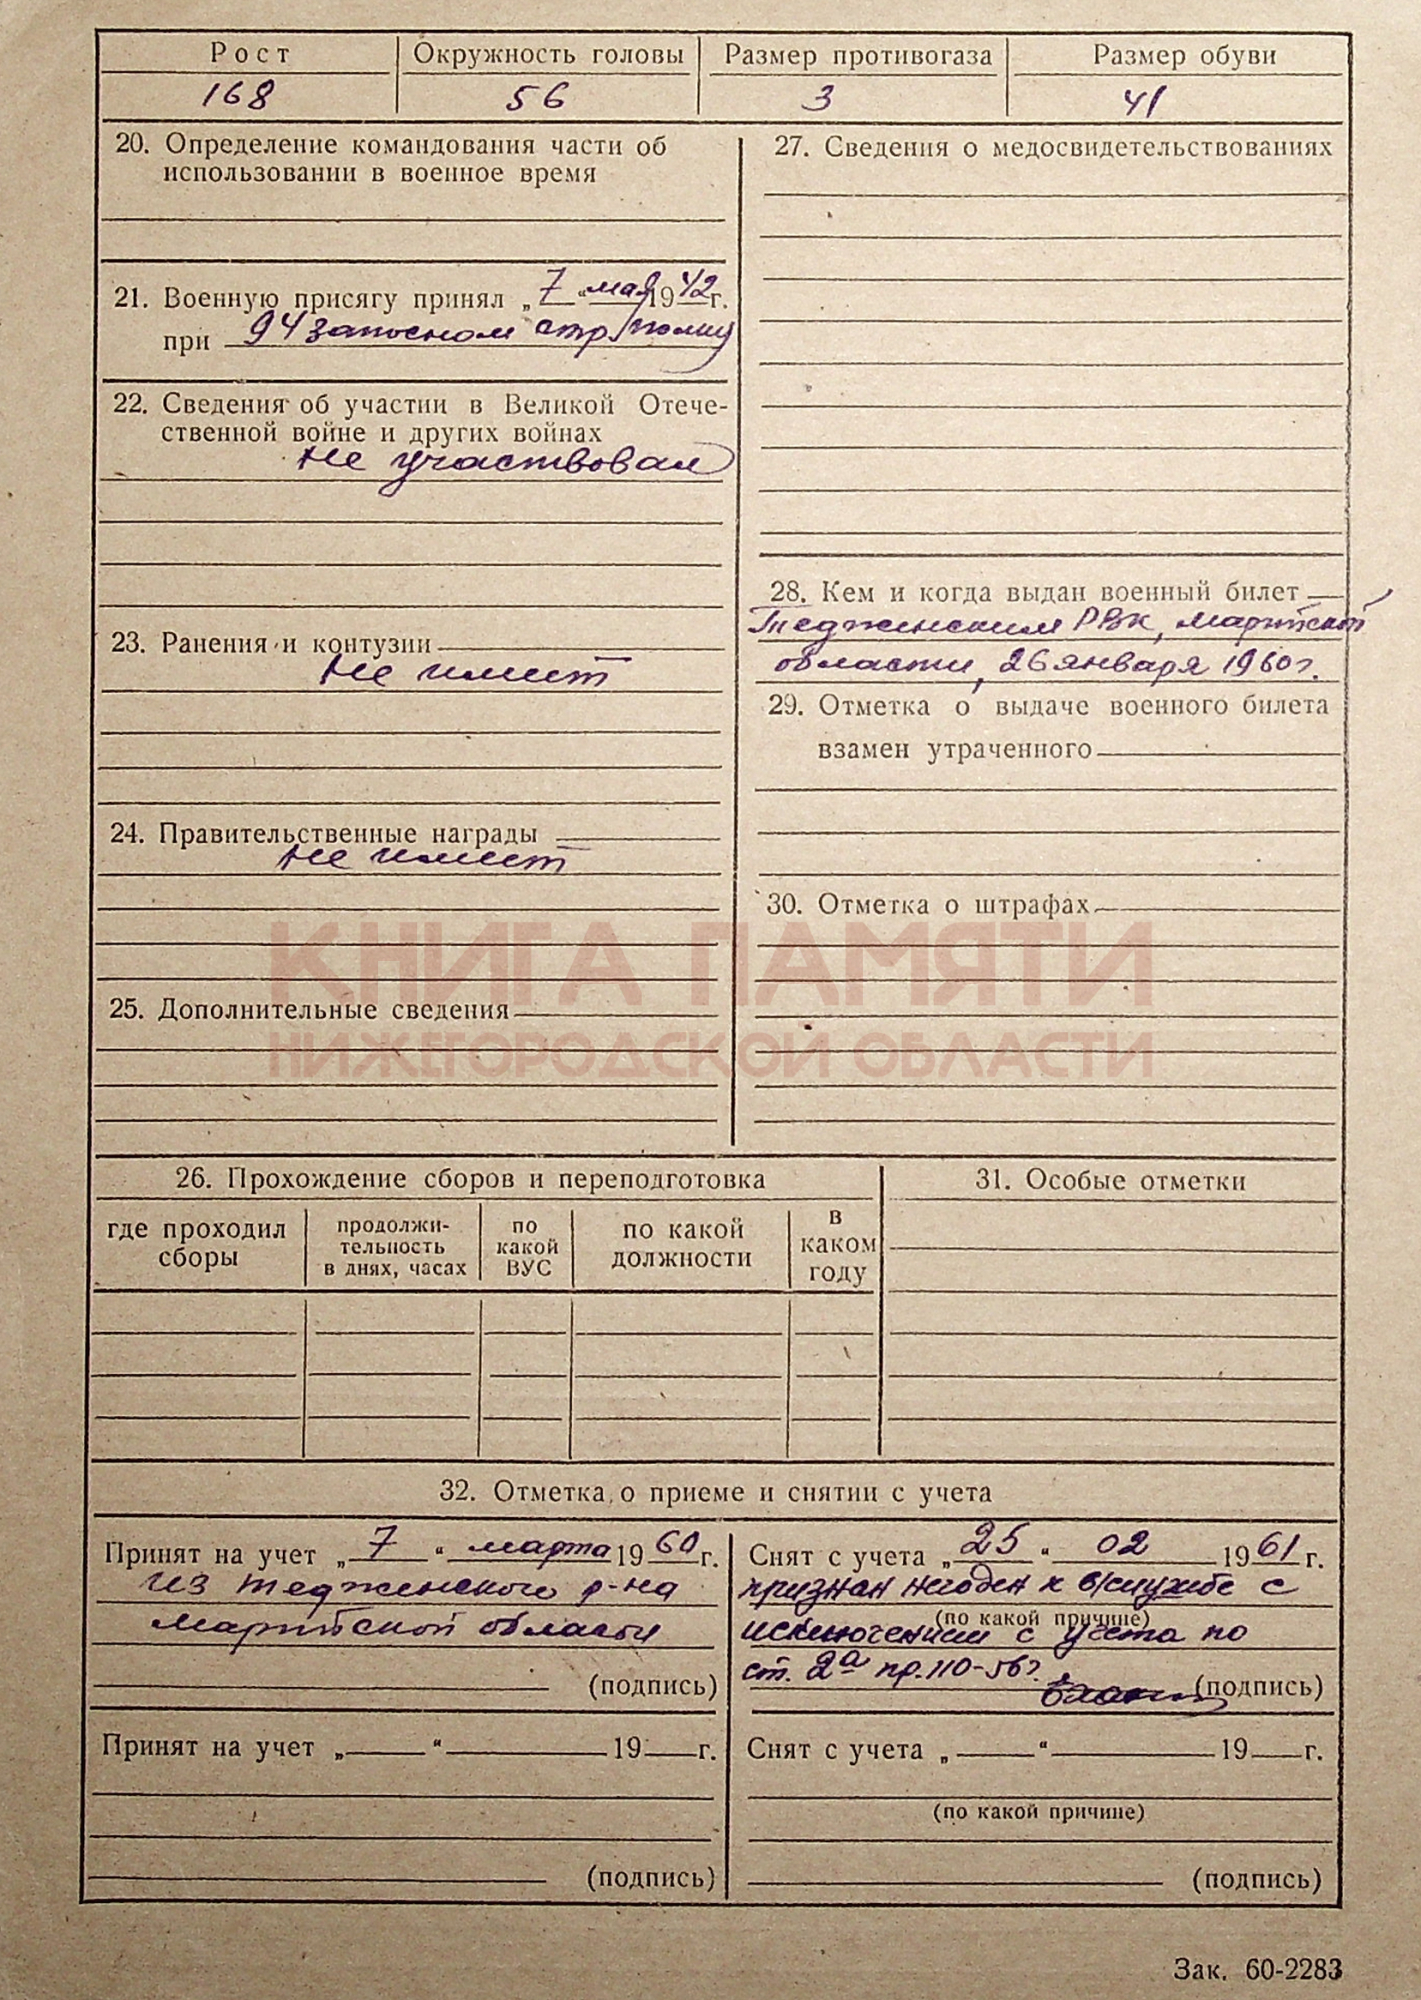 Рост Окружность головы Размер противогаза Размер обуви
168 56 3 41
20. Определение командования части об
использовании в военное время
21. Военную присягу принял „7“ мая 1942 г.
при 94 запасном стр/полку
22. Сведения об участии в Великой Отече-
ственной войне и других войнах
не участвовал
23. Ранения и контузии
не имеет
24. Правительственные награды
не имеет
25. Дополнительные сведения
27. Сведения о медосвидетельствованиях
28. Кем и когда выдан военный билет
Тедженским РВК, Марыйской
области, 26 января 1960 г.
29. Отметка о выдаче военного билета
взамен утраченного
30. Отметка о штрафах
КНИГА ПАМЯТИ
НИЖЕГОРОДСКОЙ ОБЛАСТИ
26. Прохождение сборов и переподготовка
где проходил
сборы
продолжи-
тельность
в днях, часах
по
какой
ВУС
по какой
должности
в
каком
году
31. Особые отметки
32. Отметка о приеме и снятии с учета
Принят на учет „7“ марта 1960 г.
из Тедженского р-на
Марыйской области
(подпись)
Снят с учета „25“ 02 1961 г.
признан негоден к в/службе с
(по какой причине)
исключением с учета по
ст. 2а пр. 110-56 г.
(подпись)
Принят на учет „ “ 19 г.
(подпись)
Снят с учета „ “ 19 г.
(по какой причине)
(подпись)
Зак. 60-2283